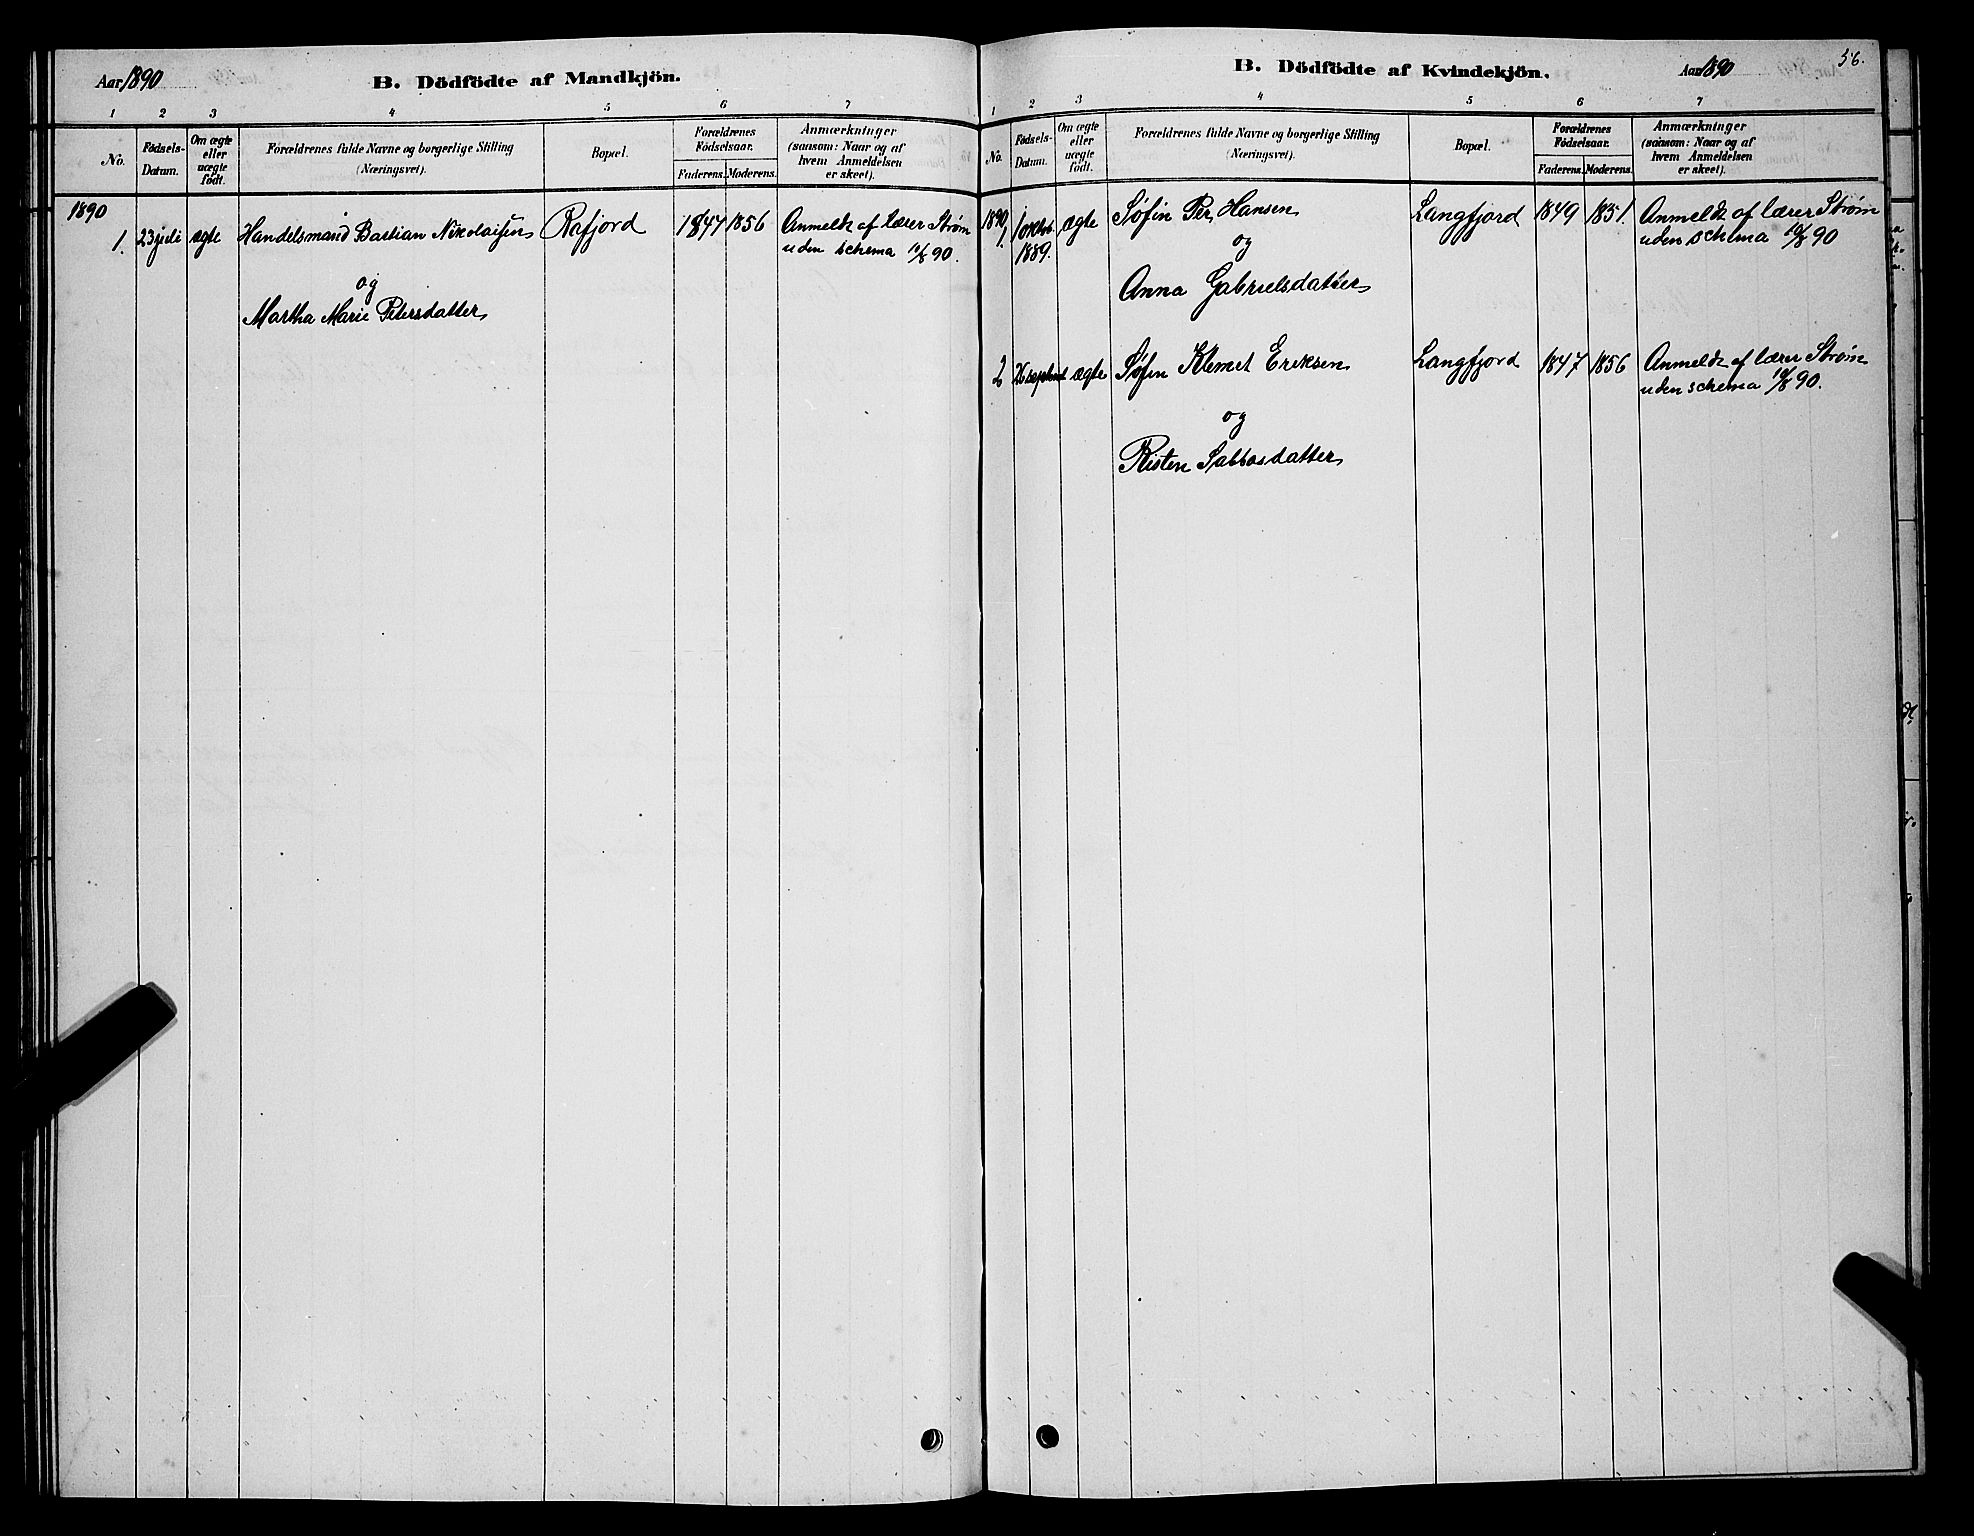 Aar 1890
B. Dödfödte af Mandkjön.
1 2 3 4 5 6 7
No.
Födsels-
Datum.
Om ægte
eller
uægte
födt.
Forældrenes fulde Navne og borgerlige Stilling
(Næringsvei).
Bopæl.
Forældrenes
Födselsaar.
Faderens. Moderens.
Anmærkninger
(saasom: Naar og af
hvem Anmeldelsen
er skeet).
1890
1. 23 juli ægte Handelsmand Bastian Nikolaisen Rafjord 1847 1856 Anmeldt af lærer Strøm
uden schema 10/8 90.
og
Martha Marie Petersdatter
B. Dödfödte af Kvindekjön.
Aar 1890
56.
1 2 3 4 5 6 7
No.
Födsels-
Datum.
Om ægte
eller
uægte
födt.
Forældrenes fulde Navne og borgerlige Stilling
(Næringsvei).
Bopæl.
Forældrenes
Födselsaar.
Faderens. Moderens.
Anmærkninger
(saasom: Naar og af
hvem Anmeldelsen
er skeet).
1890
1 1 oktob. ægte Søfin Per Hansen Langfjord 1849 1851. Anmeldt af lærer Strøm
1889. og uden schema 10/8 90
Anna Gabrielsdatter
2 26 septembr ægte Søfin Klemet Eriksen Langfjord 1847 1856 Anmeldt af lærer Strøm
uden schema 10/8 90.
og
Risten Sabbasdatter